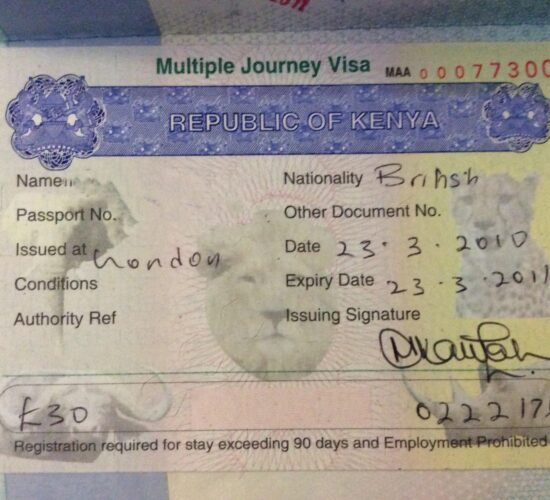 Multiple Journey Visa MAA 0077300
REPUBLIC OF KENYA
Name Nationality British
Passport No. Other Document No.
Issued at London Date 23.3.2010
Conditions Expiry Date 23.3.2011
Authority Ref Issuing Signature
£30 022217
Registration required for stay exceeding 90 days and Employment Prohibited